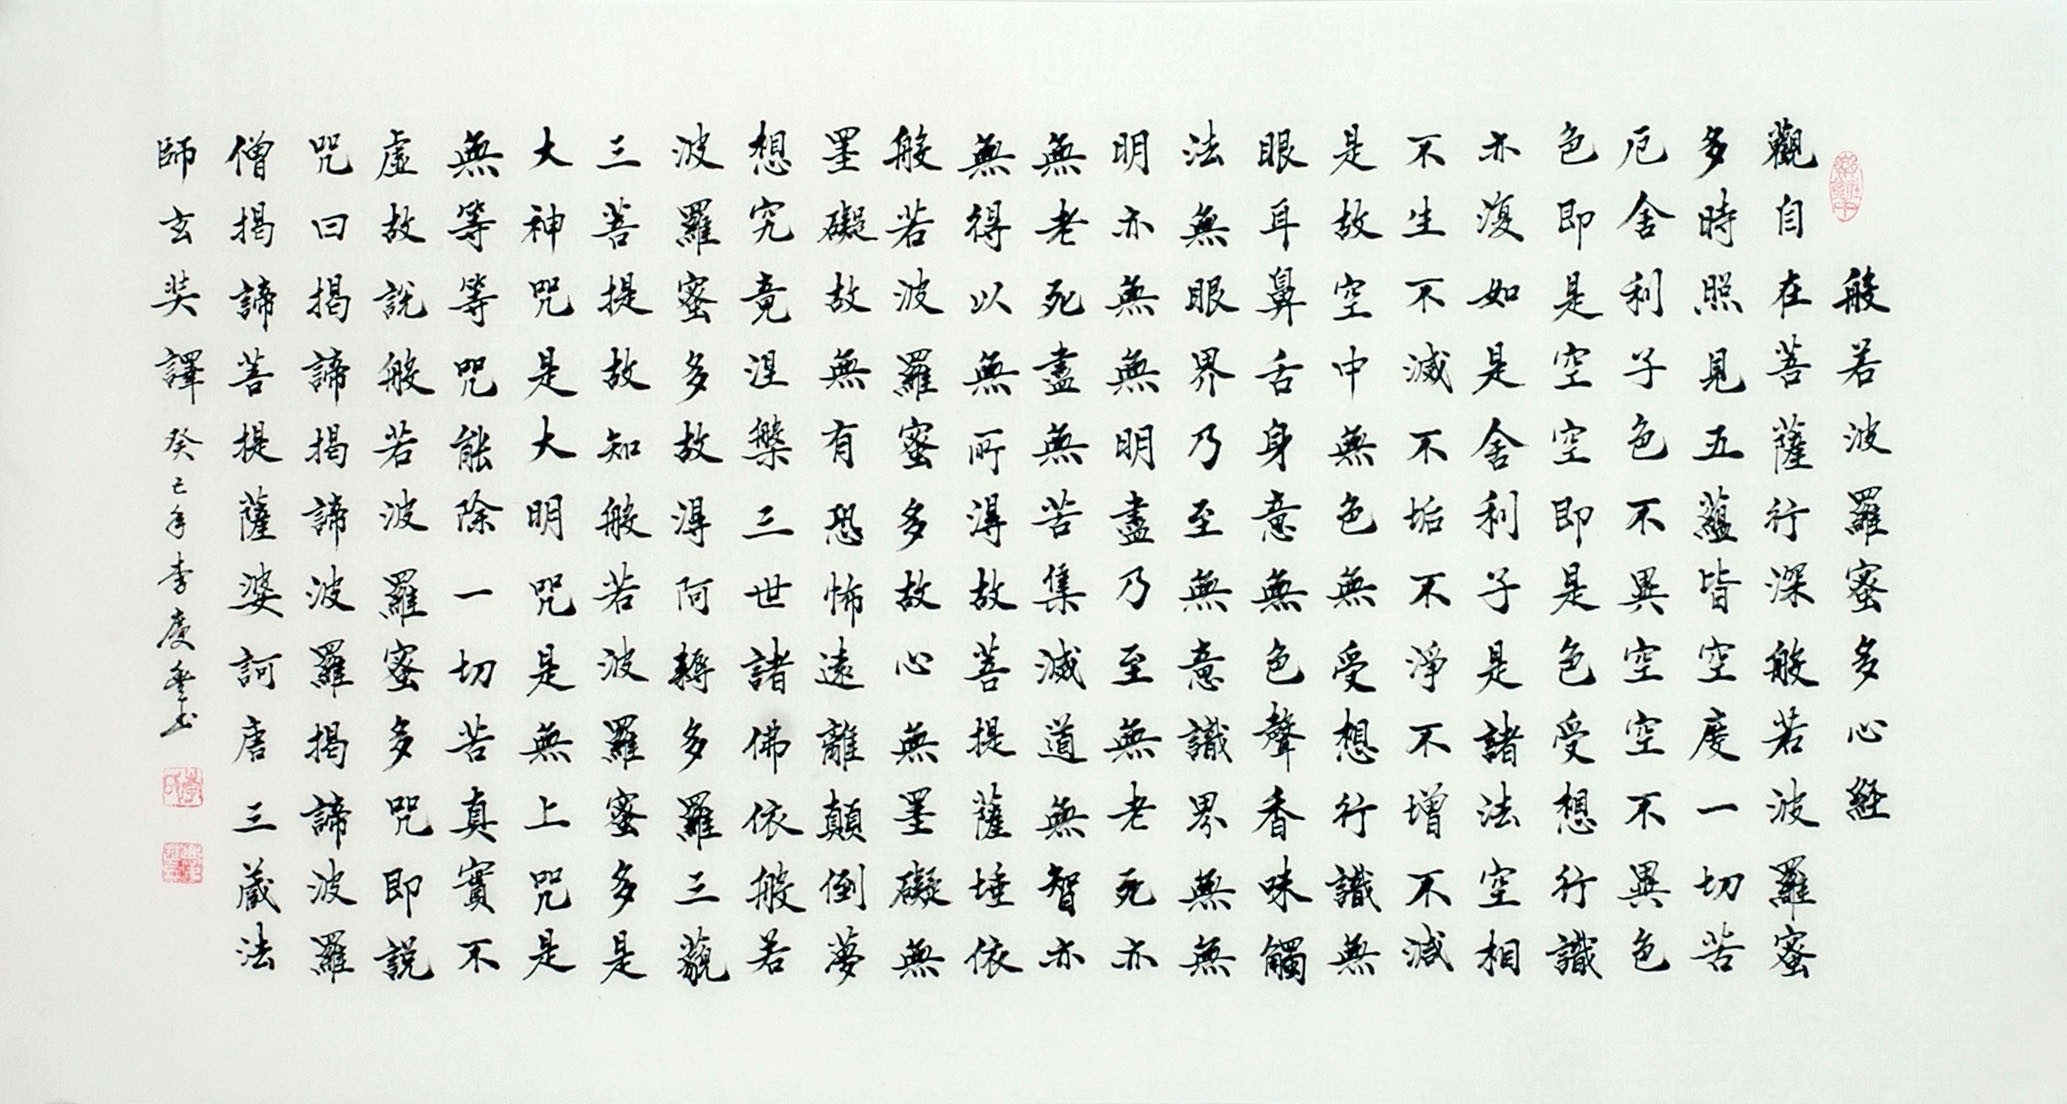 般若波羅蜜多心経
觀自在菩薩行深般若波羅蜜
多時照見五蘊皆空度一切苦
厄舍利子色不異空空不異色
色即是空空即是色受想行識
亦復如是舍利子是諸法空相
不生不滅不垢不淨不增不減
是故空中無色無受想行識無
眼耳鼻舌身意無色聲香味觸
法無眼界乃至無意識界無無
明亦無無明盡乃至無老死亦
無老死盡無苦集滅道無智亦
無得以無所得故菩提薩埵依
般若波羅蜜多故心無罣礙無
罣礙故無有恐怖遠離顛倒夢
想究竟涅槃三世諸佛依般若
波羅蜜多故得阿耨多羅三藐
三菩提故知般若波羅蜜多是
大神咒是大明咒是無上咒是
無等等咒能除一切苦真實不
虛故說般若波羅蜜多咒即說
咒曰揭諦揭諦波羅揭諦波羅
僧揭諦菩提薩婆訶唐三藏法
師玄奘譯癸巳年李慶豐书